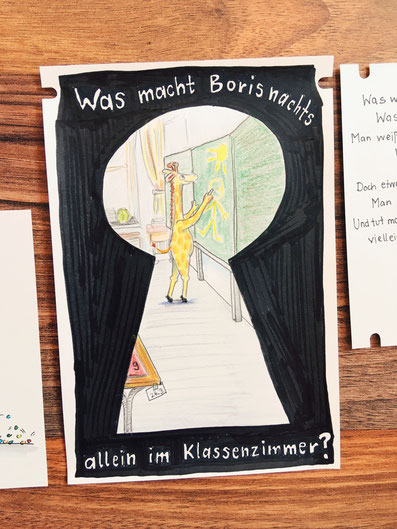 Was macht Boris nachts
allein im Klassenzimmer?
Was w
Was
Man weiß
Doch etw
Man
Und tut ma
viellei